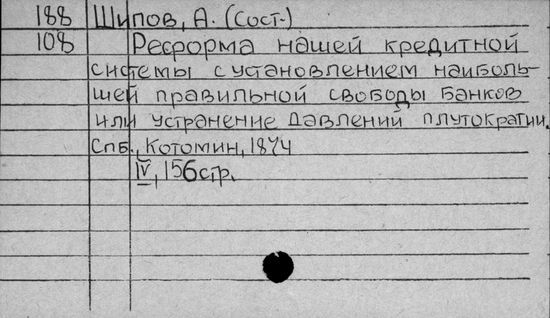 188 Шипов, А. (Сост.)
108 Реформа нашей кредитной
системы с установлением наиболь-
шей правильной свободы банков
или устранение давлений плутократии.
Спб., Котомин, 1874
IV, 156 стр.